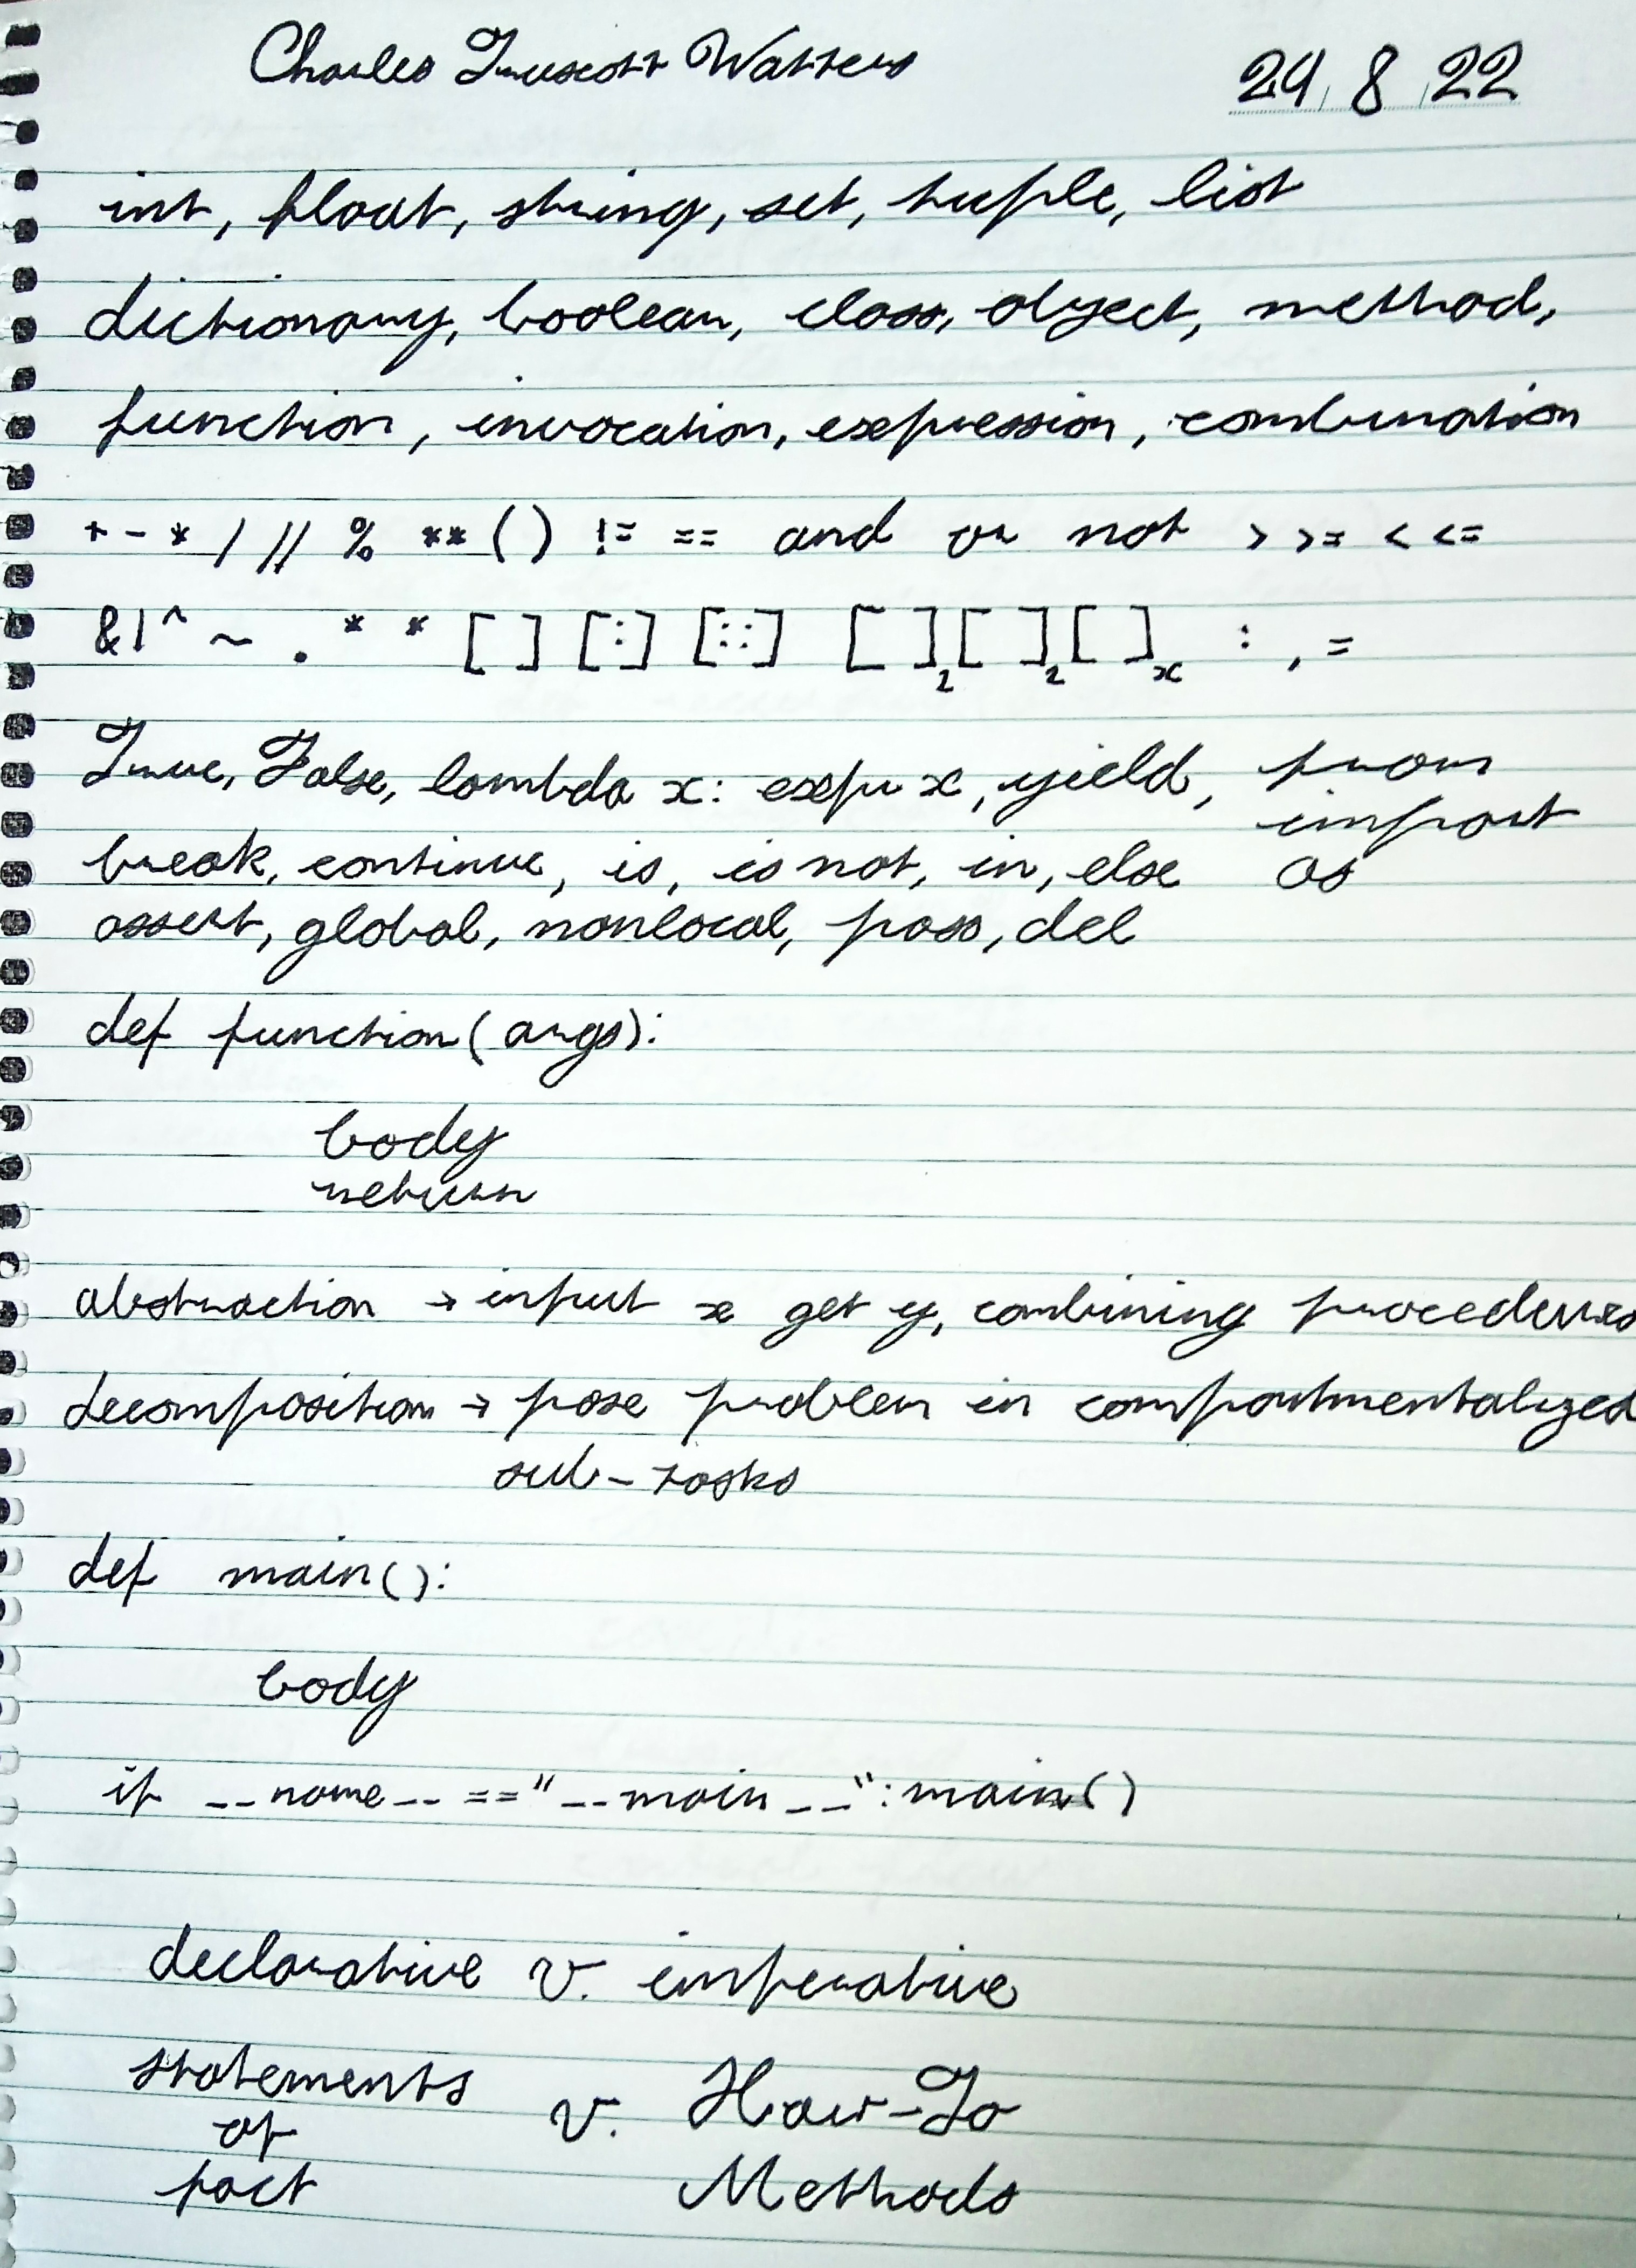 Charles Truscott Watters 29, 8, 22
int, float, string, set, tuple, list
dictionary, boolean, class, object, method,
function, invocation, expression, combination
+ - * / // % ** ( ) != == and or not > >= < <=
& | ^ ~ . * * [ ] [:] [::] [ ]₁[ ]₂[ ]ₓ : , =
True, False, lambda x: expr x, yield, from
import
break, continue, is, is not, in, else as
assert, global, nonlocal, pass, del
def function(args):
body
return
abstraction → input x get y, combining procedures
decomposition → pose problem in compartmentalized
sub-tasks
def main():
body
if __name__ == "__main__": main()
declarative v. imperative
statements v. How-To
of
fact Methods